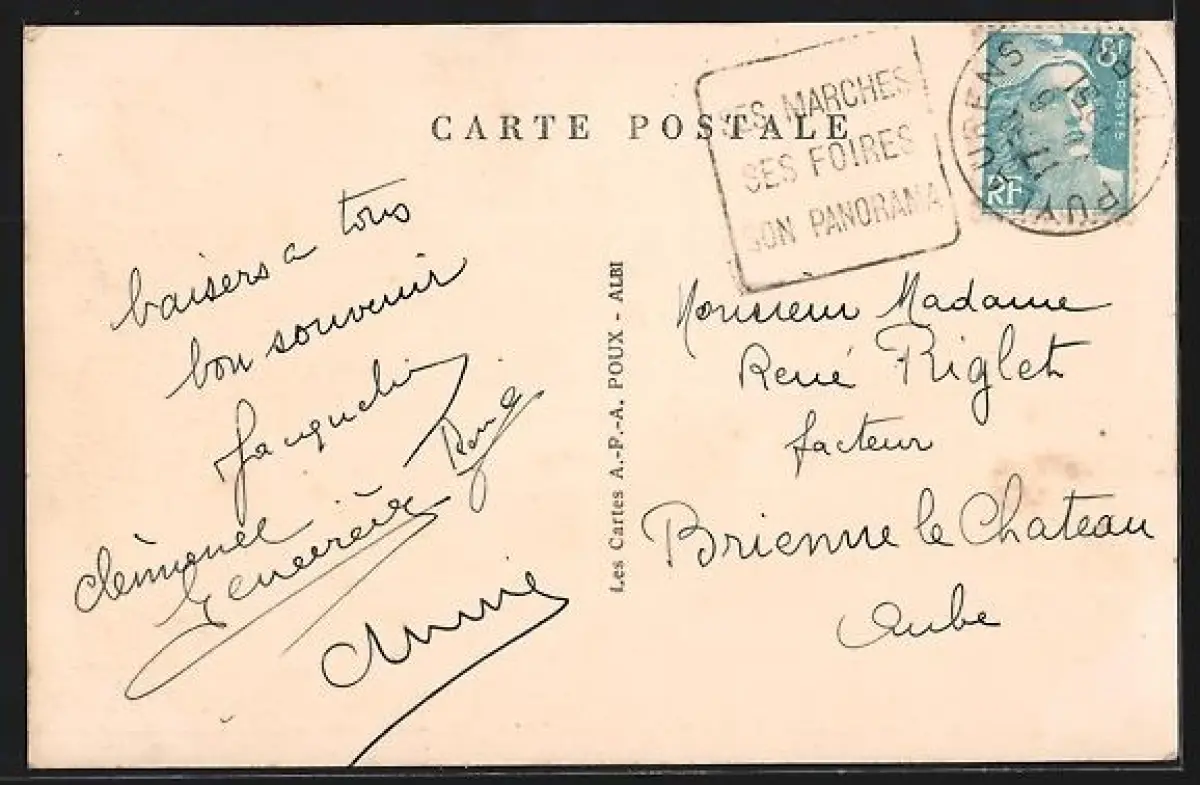 CARTE POSTALE
SES MARCHES
SES FOIRES
SON PANORAMA
8F
POSTES
RF
PUYLAURENS
TARN
baisers a tous
bon souvenir
Jacqueline
Geneviève
Annie
Les Cartes A.-P.-A. POUX - ALBI
Monsieur Madame
René Riglet
facteur
Brienne le Chateau
Aube